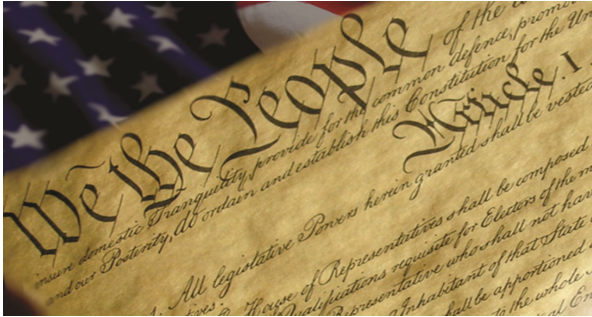 We the People of the
insure domestic Tranquility, provide for the common defence, promo
and our Posterity, do ordain and establish this Constitution for the Un
Article. I
All legislative Powers herein granted shall be vested
House of Representatives shall be composed
Qualifications requisite for Electors of the m
Representative who shall not hav
Inhabitant of that State
shall be apportioned
to the whole